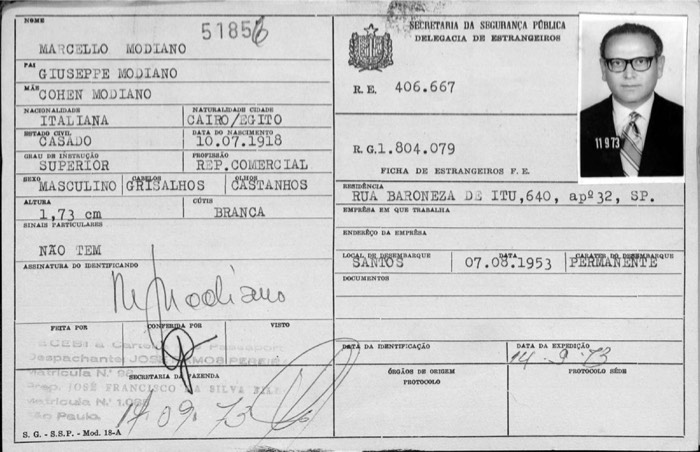 NOME
MARCELLO MODIANO
PAI
GIUSEPPE MODIANO
MÃE
COHEN MODIANO
NACIONALIDADE NATURALIDADE CIDADE
ITALIANA CAIRO/EGITO
ESTADO CIVIL DATA DO NASCIMENTO
CASADO 10.07.1918
GRAU DE INSTRUÇÃO PROFISSÃO
SUPERIOR REP.COMERCIAL
SEXO CABELOS OLHOS
MASCULINO GRISALHOS CASTANHOS
ALTURA CÚTIS
1,73 cm BRANCA
SINAIS PARTICULARES
NÃO TEM
ASSINATURA DO IDENTIFICANDO
M Modiano
FEITA POR CONFERIDA POR VISTO
Despachante
Matrícula N.º
SECRETARIA DA FAZENDA
JOSÉ FRANCISCO DA SILVA
Matrícula N.º
São Paulo
14 09 73
S. G. - S.S.P. - Mod. 18-A
SECRETARIA DA SEGURANÇA PÚBLICA
DELEGACIA DE ESTRANGEIROS
R.E. 406.667
R.G. 1.804.079
FICHA DE ESTRANGEIROS F. E.
11 9 73
RESIDÊNCIA
RUA BARONEZA DE ITU,640, apº32, SP.
EMPRÊSA EM QUE TRABALHA
ENDERÊÇO DA EMPRÊSA
LOCAL DE DESEMBARQUE DATA CARATER DO DESEMBARQUE
SANTOS 07.08.1953 PERMANENTE
DOCUMENTOS
DATA DA IDENTIFICAÇÃO DATA DA EXPEDIÇÃO
14-9-73
ÓRGÃOS DE ORIGEM PROTOCOLO SÉDE
PROTOCOLO